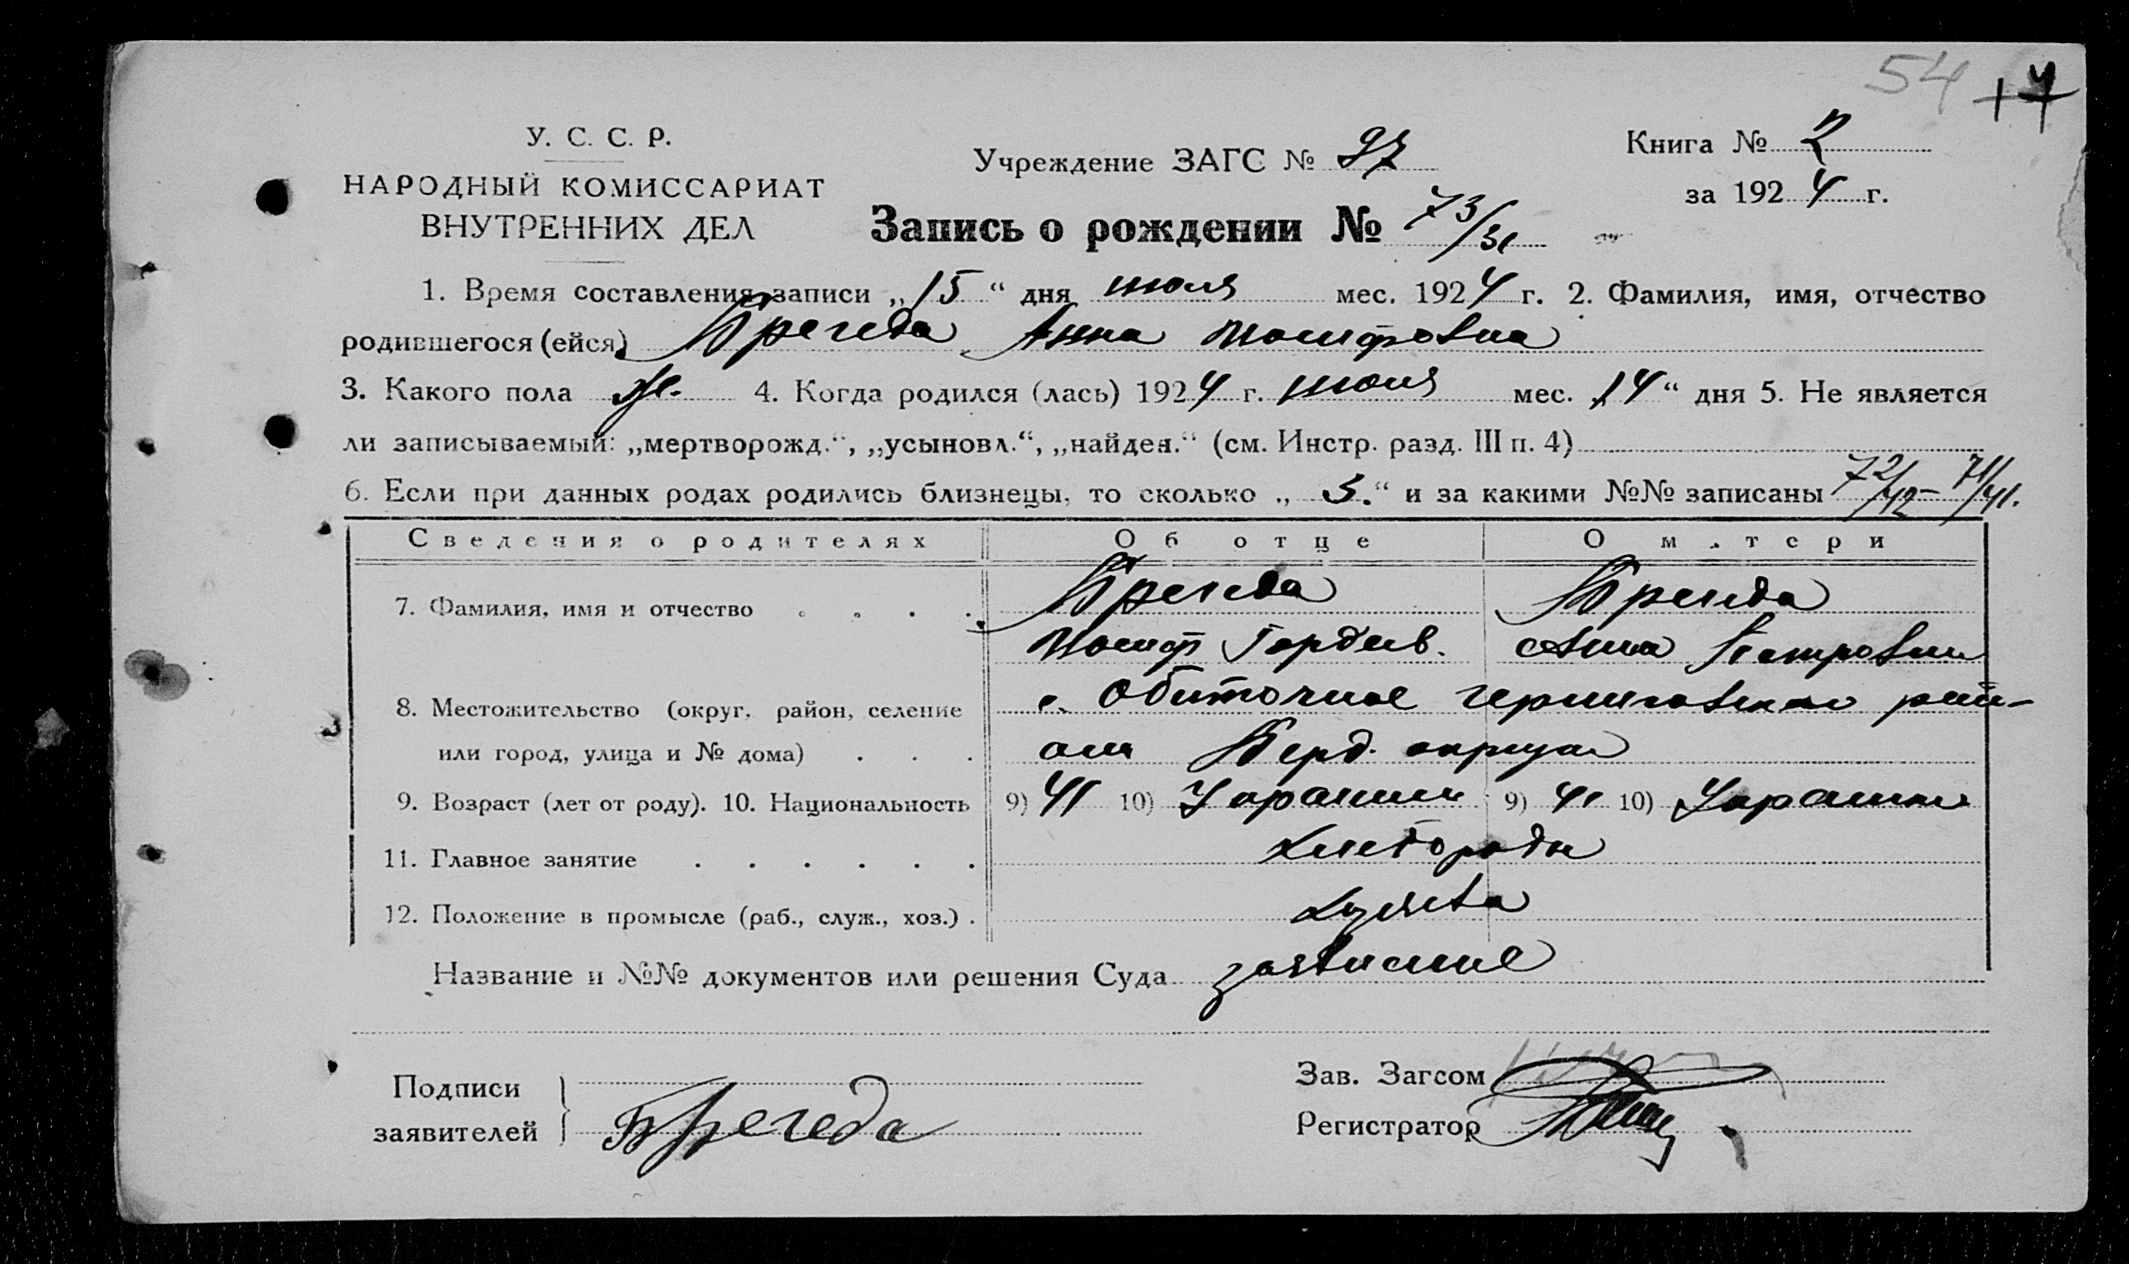 54 17
У. С. С. Р.
НАРОДНЫЙ КОМИССАРИАТ
ВНУТРЕННИХ ДЕЛ
Учреждение ЗАГС № 97
Книга № 2
за 1924 г.
Запись о рождении № 73/31
1. Время составления записи „15“ дня июля мес. 1924 г. 2. Фамилия, имя, отчество
родившегося (ейся) Брегеда Анна Иосифовна
3. Какого пола ж. 4. Когда родился (лась) 1924 г. июля мес. „14“ дня 5. Не является
ли записываемый: „мертворожд.“, „усыновл.“, „найден.“ (см. Инстр. разд. III п. 4)
6. Если при данных родах родились близнецы, то сколько „3.“ и за какими №№ записаны 72/42 – 71/41.
Сведения о родителях Об отце О матери
7. Фамилия, имя и отчество . . . . Брегеда Брегеда
Иосиф Гордеев. Анна Петровна
8. Местожительство (округ, район, селение с. Обиточное Черниговского рай-
или город, улица и № дома) . . . она Берд. округа
9. Возраст (лет от роду). 10. Национальность 9) 41 10) Украинец 9) 41 10) Украинка
11. Главное занятие . . . . . . хлебороды
12. Положение в промысле (раб., служ., хоз.) . хозяева
Название и №№ документов или решения Суда заявление
Подписи
заявителей Брегеда
Зав. Загсом
Регистратор